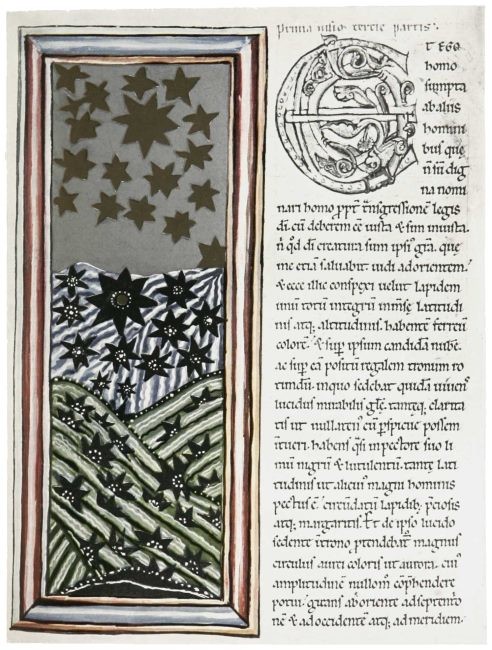 Prima uisio tercie partis.
ET EGO
homo
sumpta
ab aliis
homini
bus que
n̄ sū dig
na nomi
nari homo ppt̄ t̄nsgressionē legis
di. cū deberem eē iusta & sum iniusta.
n̄ qd̄ di creatura sum ipsiꝰ gr̄a. que
me etiā saluabit. uidi ad orientem.
& ecce illic conspexi uelut lapidem
unū totū integrū inm̄se latitudi
nis atq; altitudinis. habentē ferreū
colorē. & sup̄ ipsum candidā nubē.
ac sup̄ eā positū regalem tronum ro
tundū. in quo sedebat quidā uiuens
lucidus mirabilis gl̄e. tanteq; clarita
tis ut nullatenꝰ eū p̄spicue possem
intueri. habens q̄si in pectore suo li
mū nigrū & lutulentū. tante lati
tudinis ut alicuiꝰ magni hominis
pectus ē. circūdatū lapidib; p̄ciosis
atq; margaritis. Et de ipso lucido
sedente ī trono p̄tendebat̄ magnus
circulus aurei coloris ut aurora. cuiꝰ
amplitudinē nullom̊ cōp̄hendere
potui. girans ab oriente ad septentrio
nē & ad occidentē atq; ad meridiem.